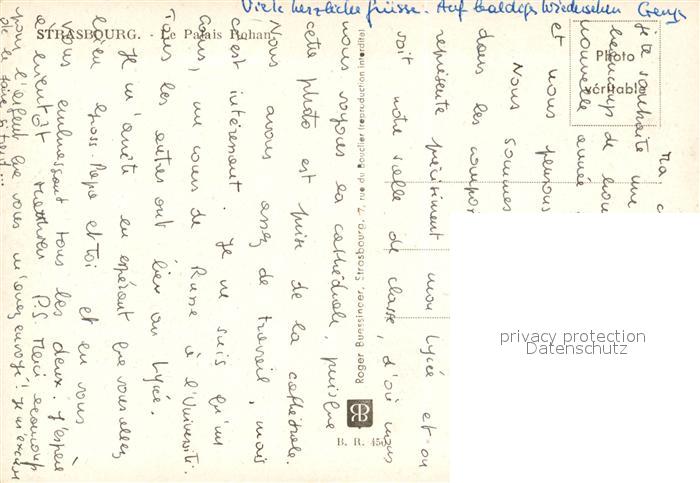 Viele herzliche Grüsse. Auf baldiges Wiedersehen Georges
STRASBOURG. - Le Palais Rohan.
Photo
véritable
Ma
je te souhaite une
beaucoup de
nouvelle année
et nous pensons
Nous sommes
dans les
représente précisément mon lycée et on
voit notre salle de classe, d'où nous
Roger Bunssincer, Strasbourg, 7, rue du Bouclier (reproduction interdite)
B. R. 450
nous voyons la cathédrale, puisque
cette photo est prise de la cathédrale.
Nous avons assez de travail, mais
c'est intéressant. Je ne suis qu'un
cours, un cours de Russe à l'Université.
Tous les autres ont lieu au lycée.
Je m'arrête en espérant que vous allez
bien Gross-Papa et toi et en vous
Vous embrassant tous les deux. J'espère
à bientôt Matthieu P.S. Merci beaucoup
pour l'argent que vous m'avez envoyé! Je m'excuse
de le faire si tard...
privacy protection
Datenschutz